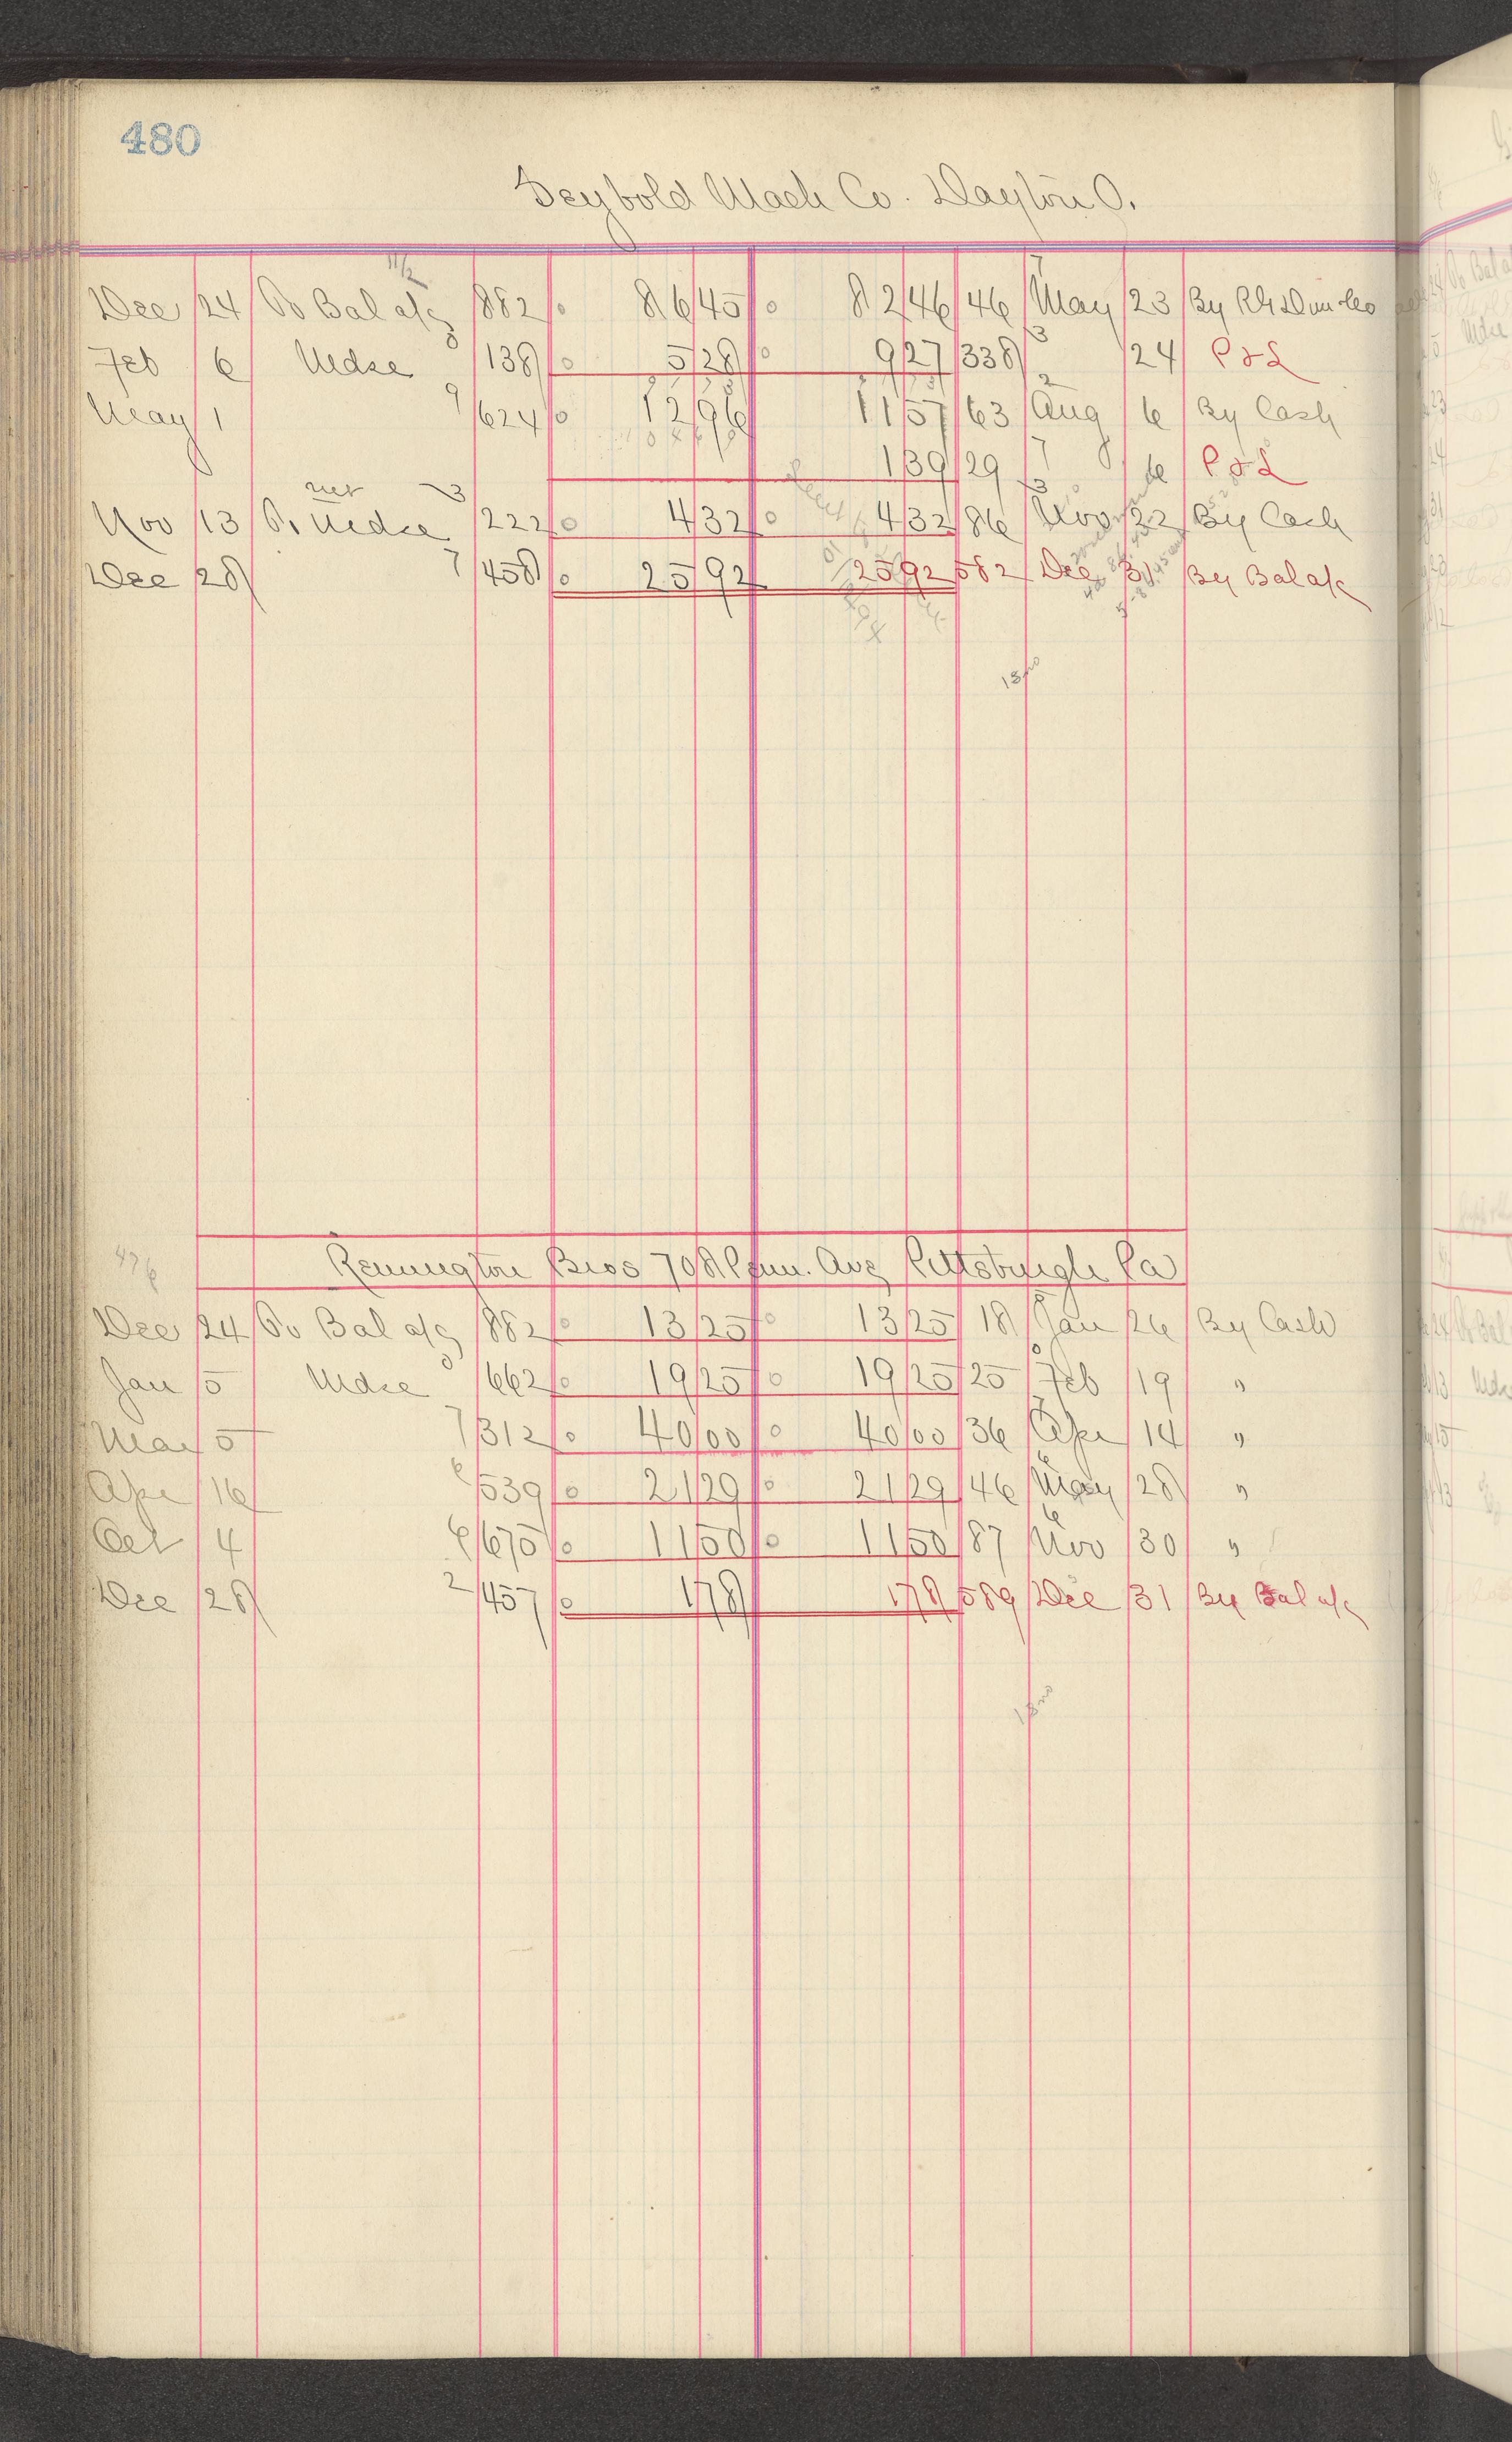 480
Seybold Mach Co. Dayton O.
11/2
Dec 24 To Bal a/c 882 86 45 82 46 46 May 23 By
Feb 6 Mdse 138 5 28 9 27 338 24 P & L
May 1 624 12 96 11 57 63 Aug 6 By Cash
1 39 29 6 P & L
net
Nov 13 To Mdse 222 4 32 4 32 86 Nov 22 By Cash
Dec 28 458 25 92 25 92 582 Dec 31 By Bal a/c
Remington Bros 708 Penn. Ave Pittsburgh Pa
Dec 24 To Bal a/c 882 13 25 13 25 18 Jan 26 By Cash
Jan 5 Mdse 662 19 25 19 25 25 Feb 19 "
Mar 5 312 40 00 40 00 36 Apr 14 "
Apr 16 539 21 29 21 29 46 May 28 "
Oct 4 675 11 50 11 50 87 Nov 30 "
Dec 28 457 1 78 1 78 589 Dec 31 By Bal a/c